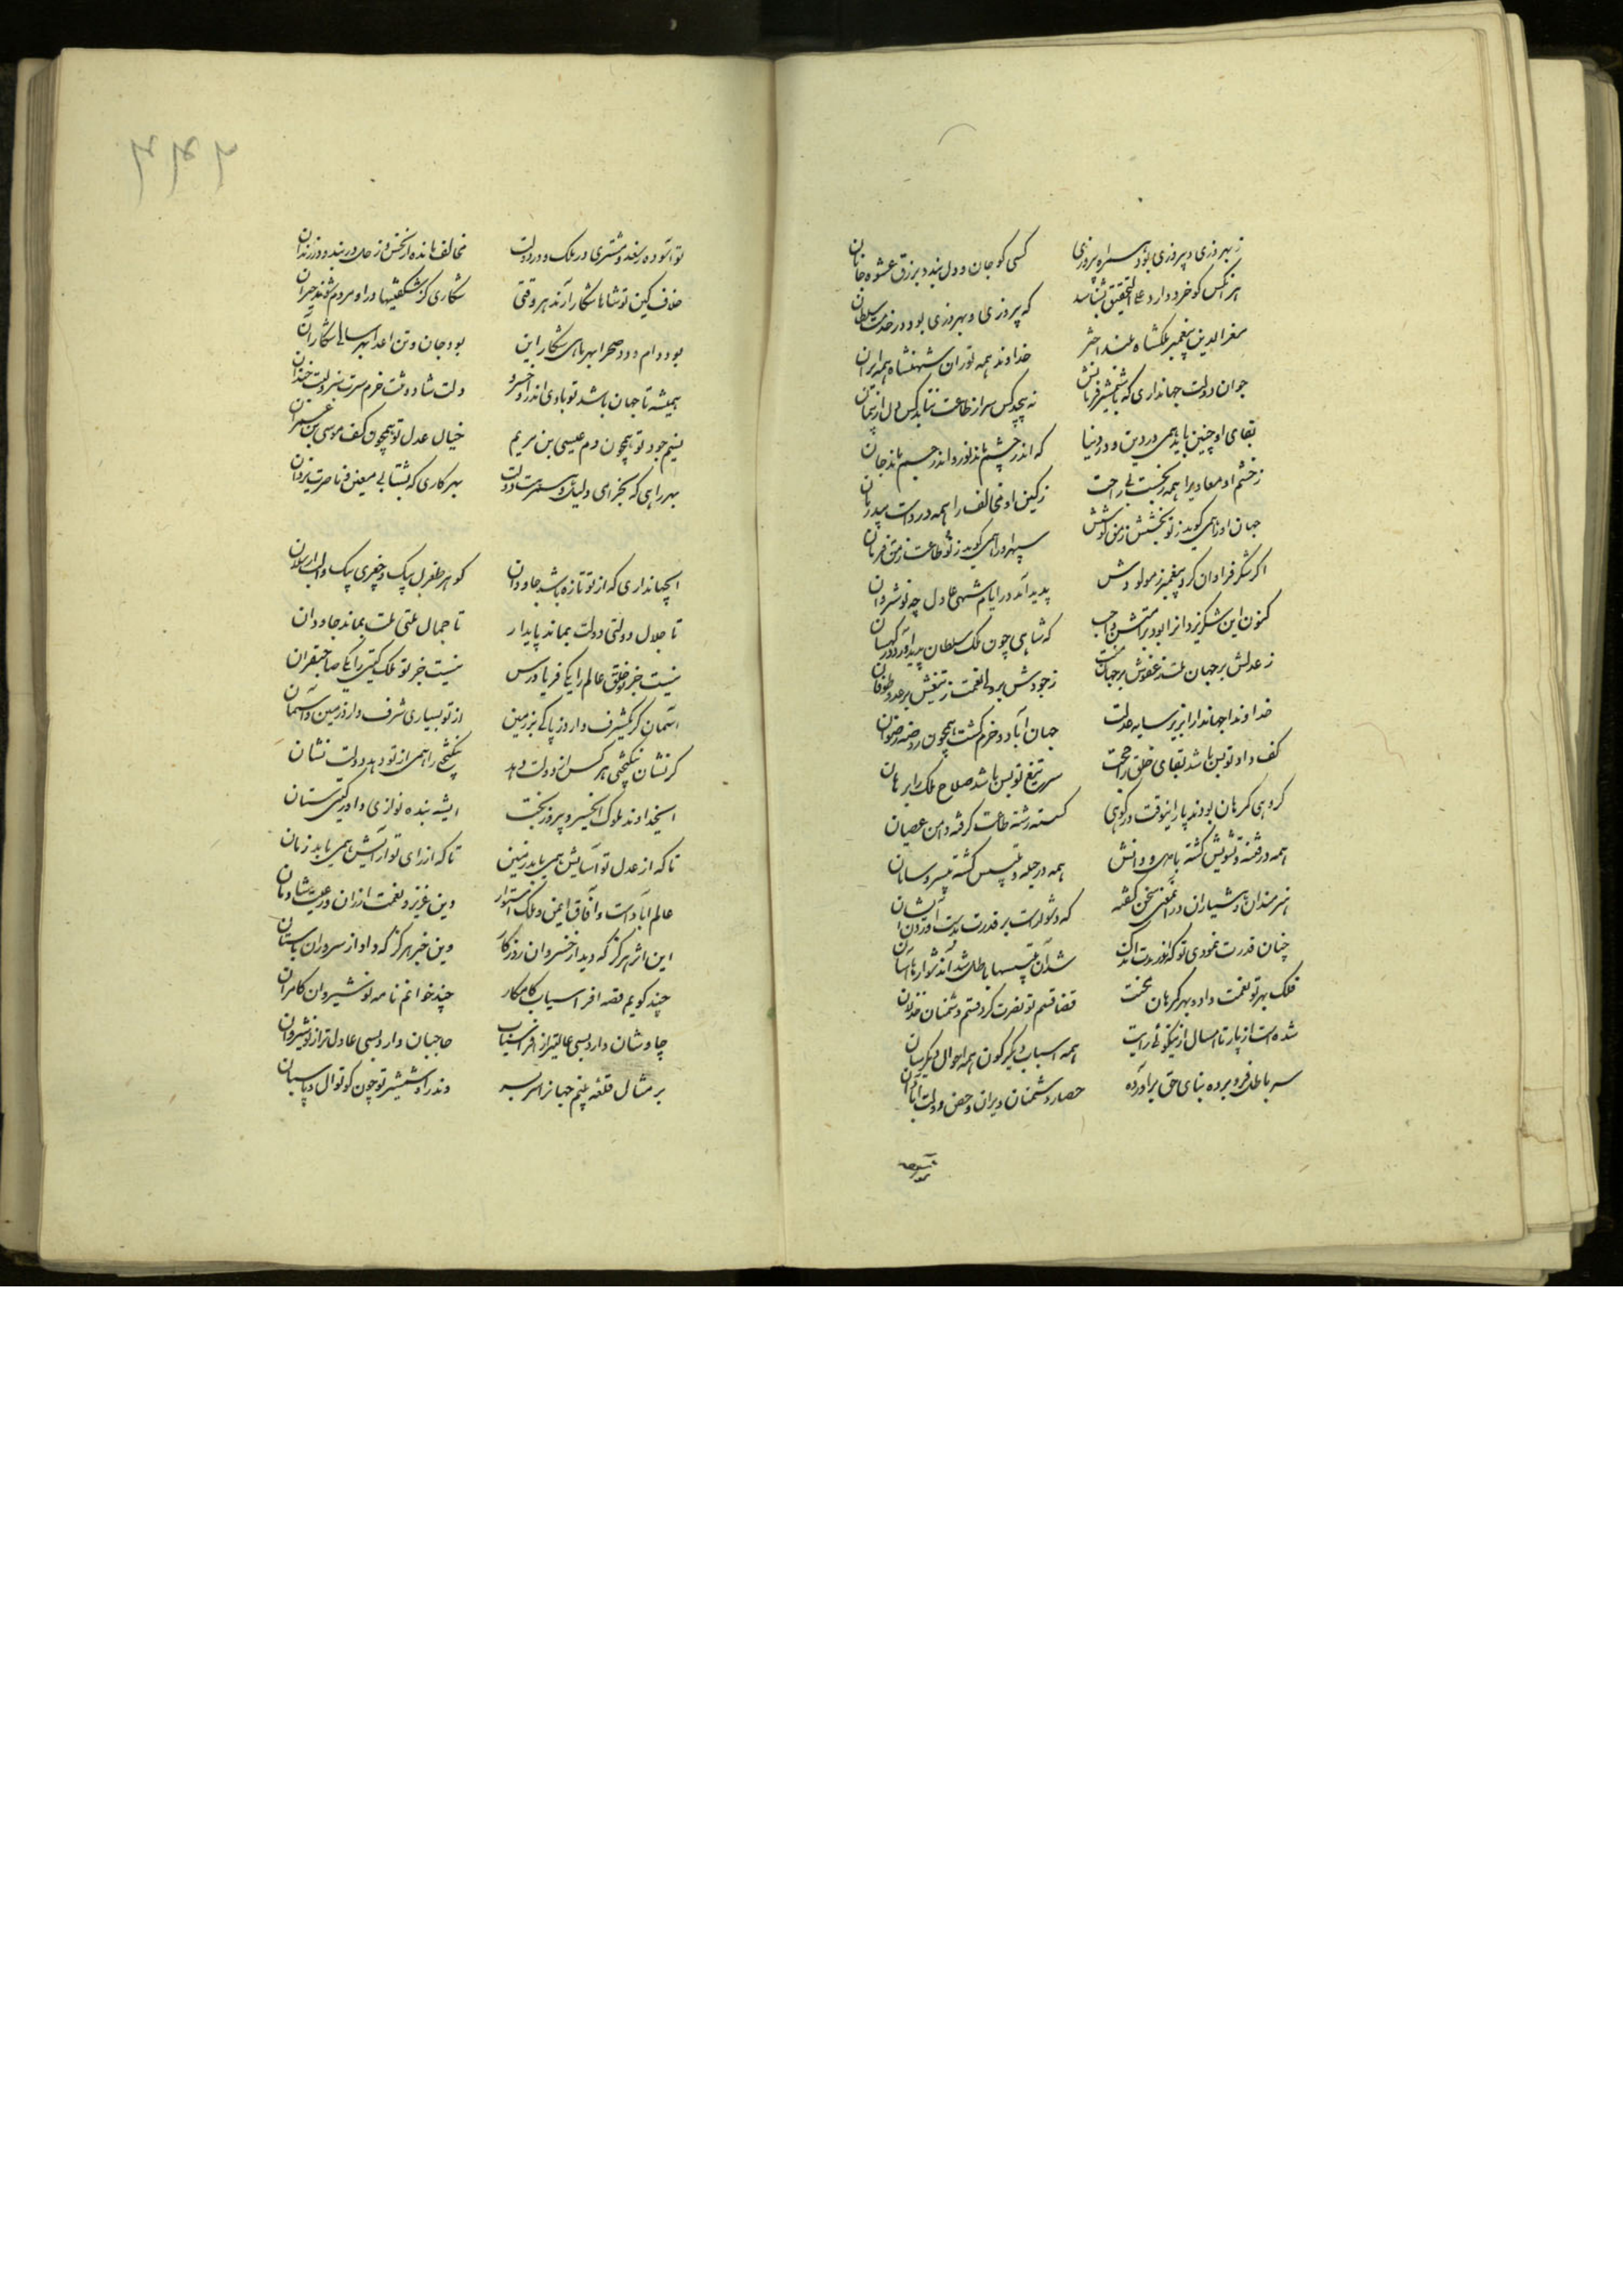 ز بهروزی و پیروزی بود سراسر بروزی کسی کو جان و دل بندد بزرق عشوه جانان
هر انکس کو خرد دارد علی التحقیق بشناسد که پیروزی و بهروزی بود در خدمت سلطان
معز الدین پیغمبر ملکشاه بلند اختر خداوند همه توران شهنشاه همه ایران
جوان دولت جهانداری که با شمشیر و فرمانش نه پیچد کس سر از طاعت نتابد کس دل از پیمان
بقای او چنین باید همی در دین و در دنیا که اندر چشم باشد نور و اندر جسم باشد جان
ز خشم او معادیرا همه رنجست بی راحت ز کین او مخالف را همه دردست بیدرمان
جهان او را همی کوید ز تو بخشش ز من کوشش سپهر او را همی کوید ز تو طاعت ز من فرمان
اکر شکر فراوان کرد پیغمبر ز مولودش پدید آمد در ایام شهی عادل چو نوشروان
کنون این شکر یزدانرا بود بر امتش واجب که شاهی چون ملک سلطان پدید آورد در کیهان
ز عدلش بر جهان منت ز عفوش بر جهان ز جودش بر ولی نعمت ز تیغش بر عدو طوفان
خداوندا جهاندارا بزیر سایه عدلت جهان آباد و خرم کشت همچون روضه رضوان
کف داد تو بس باشد بقای خلق را حجت سر تیغ تو بس باشد صلاح ملک را برهان
کروهی کمرهان بودند پار اینوقت در کوهی کسسته رشته طاعت کرفته دامن عصیان
همه در فتنه و تشویش کشته با هش و دانش همه در حیله و تلبیس کشته بی سر و سامان
هنرمندان و هشیاران در آنمعنی سخن کفته که دشوارست بر قدرت بدست آوردن ایشان
چنان قدرت نمودی تو که اندر مدت اندک شد آن تلبیسها باطل شد آن دشوارها آسان
فلک بهر تو نعمت داد و بهر کمرهان محنت قضا قسم تو نصرت کرد قسم دشمنان خذلان
شده است از پار تا امسال از نیکوئی رایت همه اسباب دیکر کون همه احوال دیکر سان
سر باطل فرو برده بنای حق برآورده حصار دشمنان ویران و حصن دولت آبادان
تو آسوده ز سعد مشتری در ملک و در دولت مخالف مانده از نحس زحل در بند و در زندان
خلاف کین تو شاها شکار آرند هر وقتی شکاری کز شکفتیها در او مردم شوند حیران
بود دام و دد صحرا بهر ماهی شکار این بود جان و تن اعدا بهر سالی شکار آن
همیشه تا جهان باشد تو بادی اندر او خسرو دلت شاد و تنت خرم سرت سبز و لبت خندان
نسیم جود تو همچون دم عیسی بن مریم خیال عدل تو همچون کف موسی بن عمران
بهر راهی که بخرامی دلیل و رهبرت دولت بهر کاری که بشتابی معین و ناصرت یزدان
ایجهانداری که از تو تازه باشد جاودان کوهر طغرل بیک و چغری بیک و الب ارسلان
تا جلال دولتی دولت بماند پایدار تا جمال ملتی ملت بماند جاودان
نیست جز تو خلق عالم را یکی فریادرس نیست جز تو ملک کیتی را یکی صاحبقران
آسمان کر یکشرف دارد ز پاکی بر زمین از تو بسیاری شرف دارد زمین و آسمان
کر نشان نیکبختی هر کس از دولت دهد نیکبختی را همی از تو دهد دولت نشان
ایخداوند ملوک ایخسرو پیروز بخت ای شه بنده نوازی داور کیتی ستان
تا که از عدل تو آسایش همی یابد زمین تا که از رای تو آرایش همی یابد زمان
عالم آبادست و آفاق ایمن و ملک استوار دین عزیز و نعمت ارزان و رعیت شادمان
این اثر هرکز که دید از خسروان روزکار وین خبر هرکز که داد از سروران باستان
چند کویم قصه افراسیاب کامکار چند خوانم نامه نوشیروان کامران
چاوشان داری بسی عالیتر از افراسیاب حاجبان داری بسی عادلتر از نوشیروان
بر مثال قلعه بینم جهانرا سر بسر وندر او شمشیر تو چون کوتوال و پاسبان